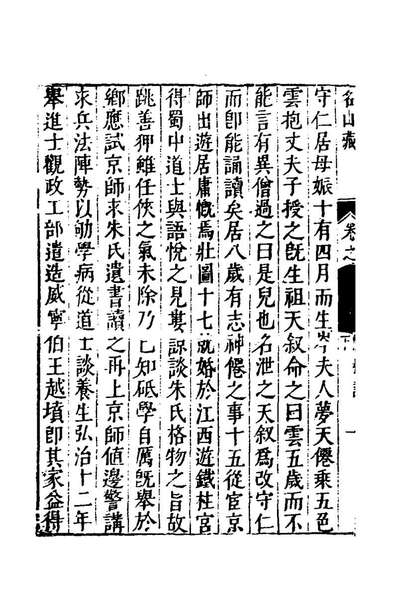 名山藏 卷之
守仁居母娠十有四月而生岑夫人夢天僊乘五色
雲抱丈夫子授之旣生祖天叙命之曰雲五歲而不
能言有異僧過之曰是兒也名泄之天叙爲改守仁
而卽能誦讀矣居八歲有志神僊之事十五從宦京
師出遊居庸慨焉壯圖十七就婚於江西遊鐵柱宮
得蜀中道士與語悅之見婁諒談朱氏格物之旨故
跳善狎雖任俠之氣未除乃已知砥學自厲旣舉於
鄉應試京師求朱氏遺書讀之再上京師値邊警講
求兵法陣勢以劬學病從道士談養生弘治十二年
舉進士觀政工部遣造威寧伯王越墳卽其家益得